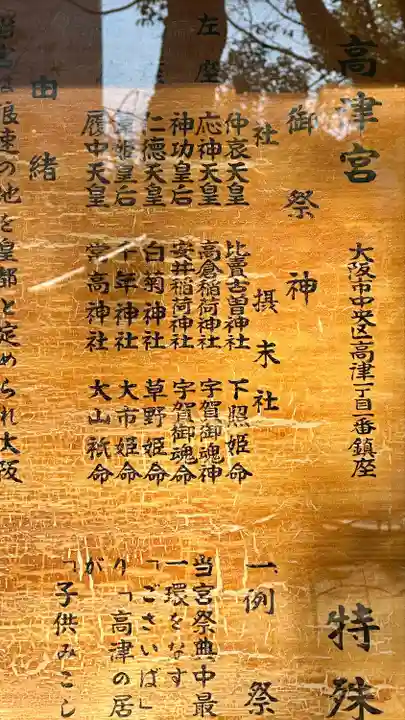 高津宮
大阪市中央区高津一丁目一番鎮座
御祭神
社
仲哀天皇
左座 応神天皇
神功皇后
仁徳天皇
皇后
履中天皇
摂末社
比賣古曽神社 下照姫命
高倉稲荷神社 宇賀御魂神
安井稲荷神社 宇賀御魂命
白菊神社 草野姫命
千年神社 大市姫命
常高神社 大山祇命
由緒
浪速の地を皇都と定められ大阪
特殊
一例祭
当宮祭典中最
一環をなす
「ごさいば」
り「高津の居
が
「子供みこし